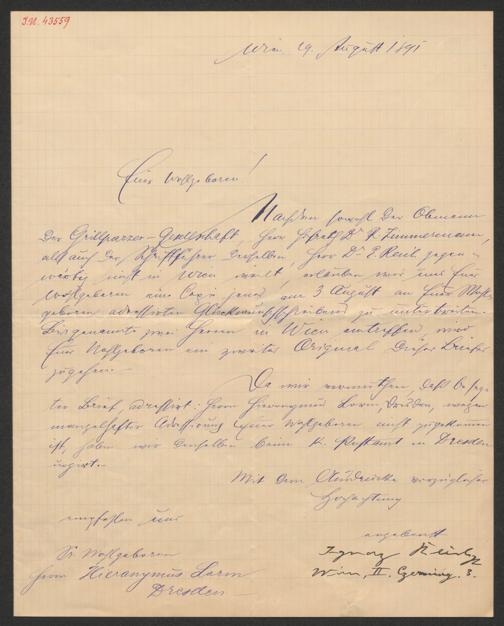 I.N. 43559
Wien, 29. August 1891
Euer Wohlgeboren!
Nachdem sowohl der Obmann
der Grillparzer-Gesellschaft, Herr Hofrath Dr R Zimmermann,
als auch der Schriftführer derselben, Herr Dr E Reich gegen-
wärtig nicht in Wien weilt, erlauben wir uns Euer
Wohlgeboren eine Copie jenes am 3 August an Euer Wohl-
geboren adressirten Glückwunschschreibens zu unterbreiten.
zwei Herren in Wien eintreffen, wird
Euer Wohlgeboren ein zweites Original dieses Briefes
zugehen.
Da wir vermuthen, daß besag-
ter Brief, adressirt: Herrn Hieronymus Lorm, Dresden, wegen
mangelhafter Adressirung Euer Wohlgeboren nicht zugekommen
ist, haben wir denselben beim k. Postamt in Dresden
urgirt.
Mit dem Ausdrucke vorzüglicher
Hochachtung
empfehlen uns
ergebenst
Sr Wohlgeboren
Herrn Hieronymus Lorm
Dresden
Ignaz
Wien, II. 3.